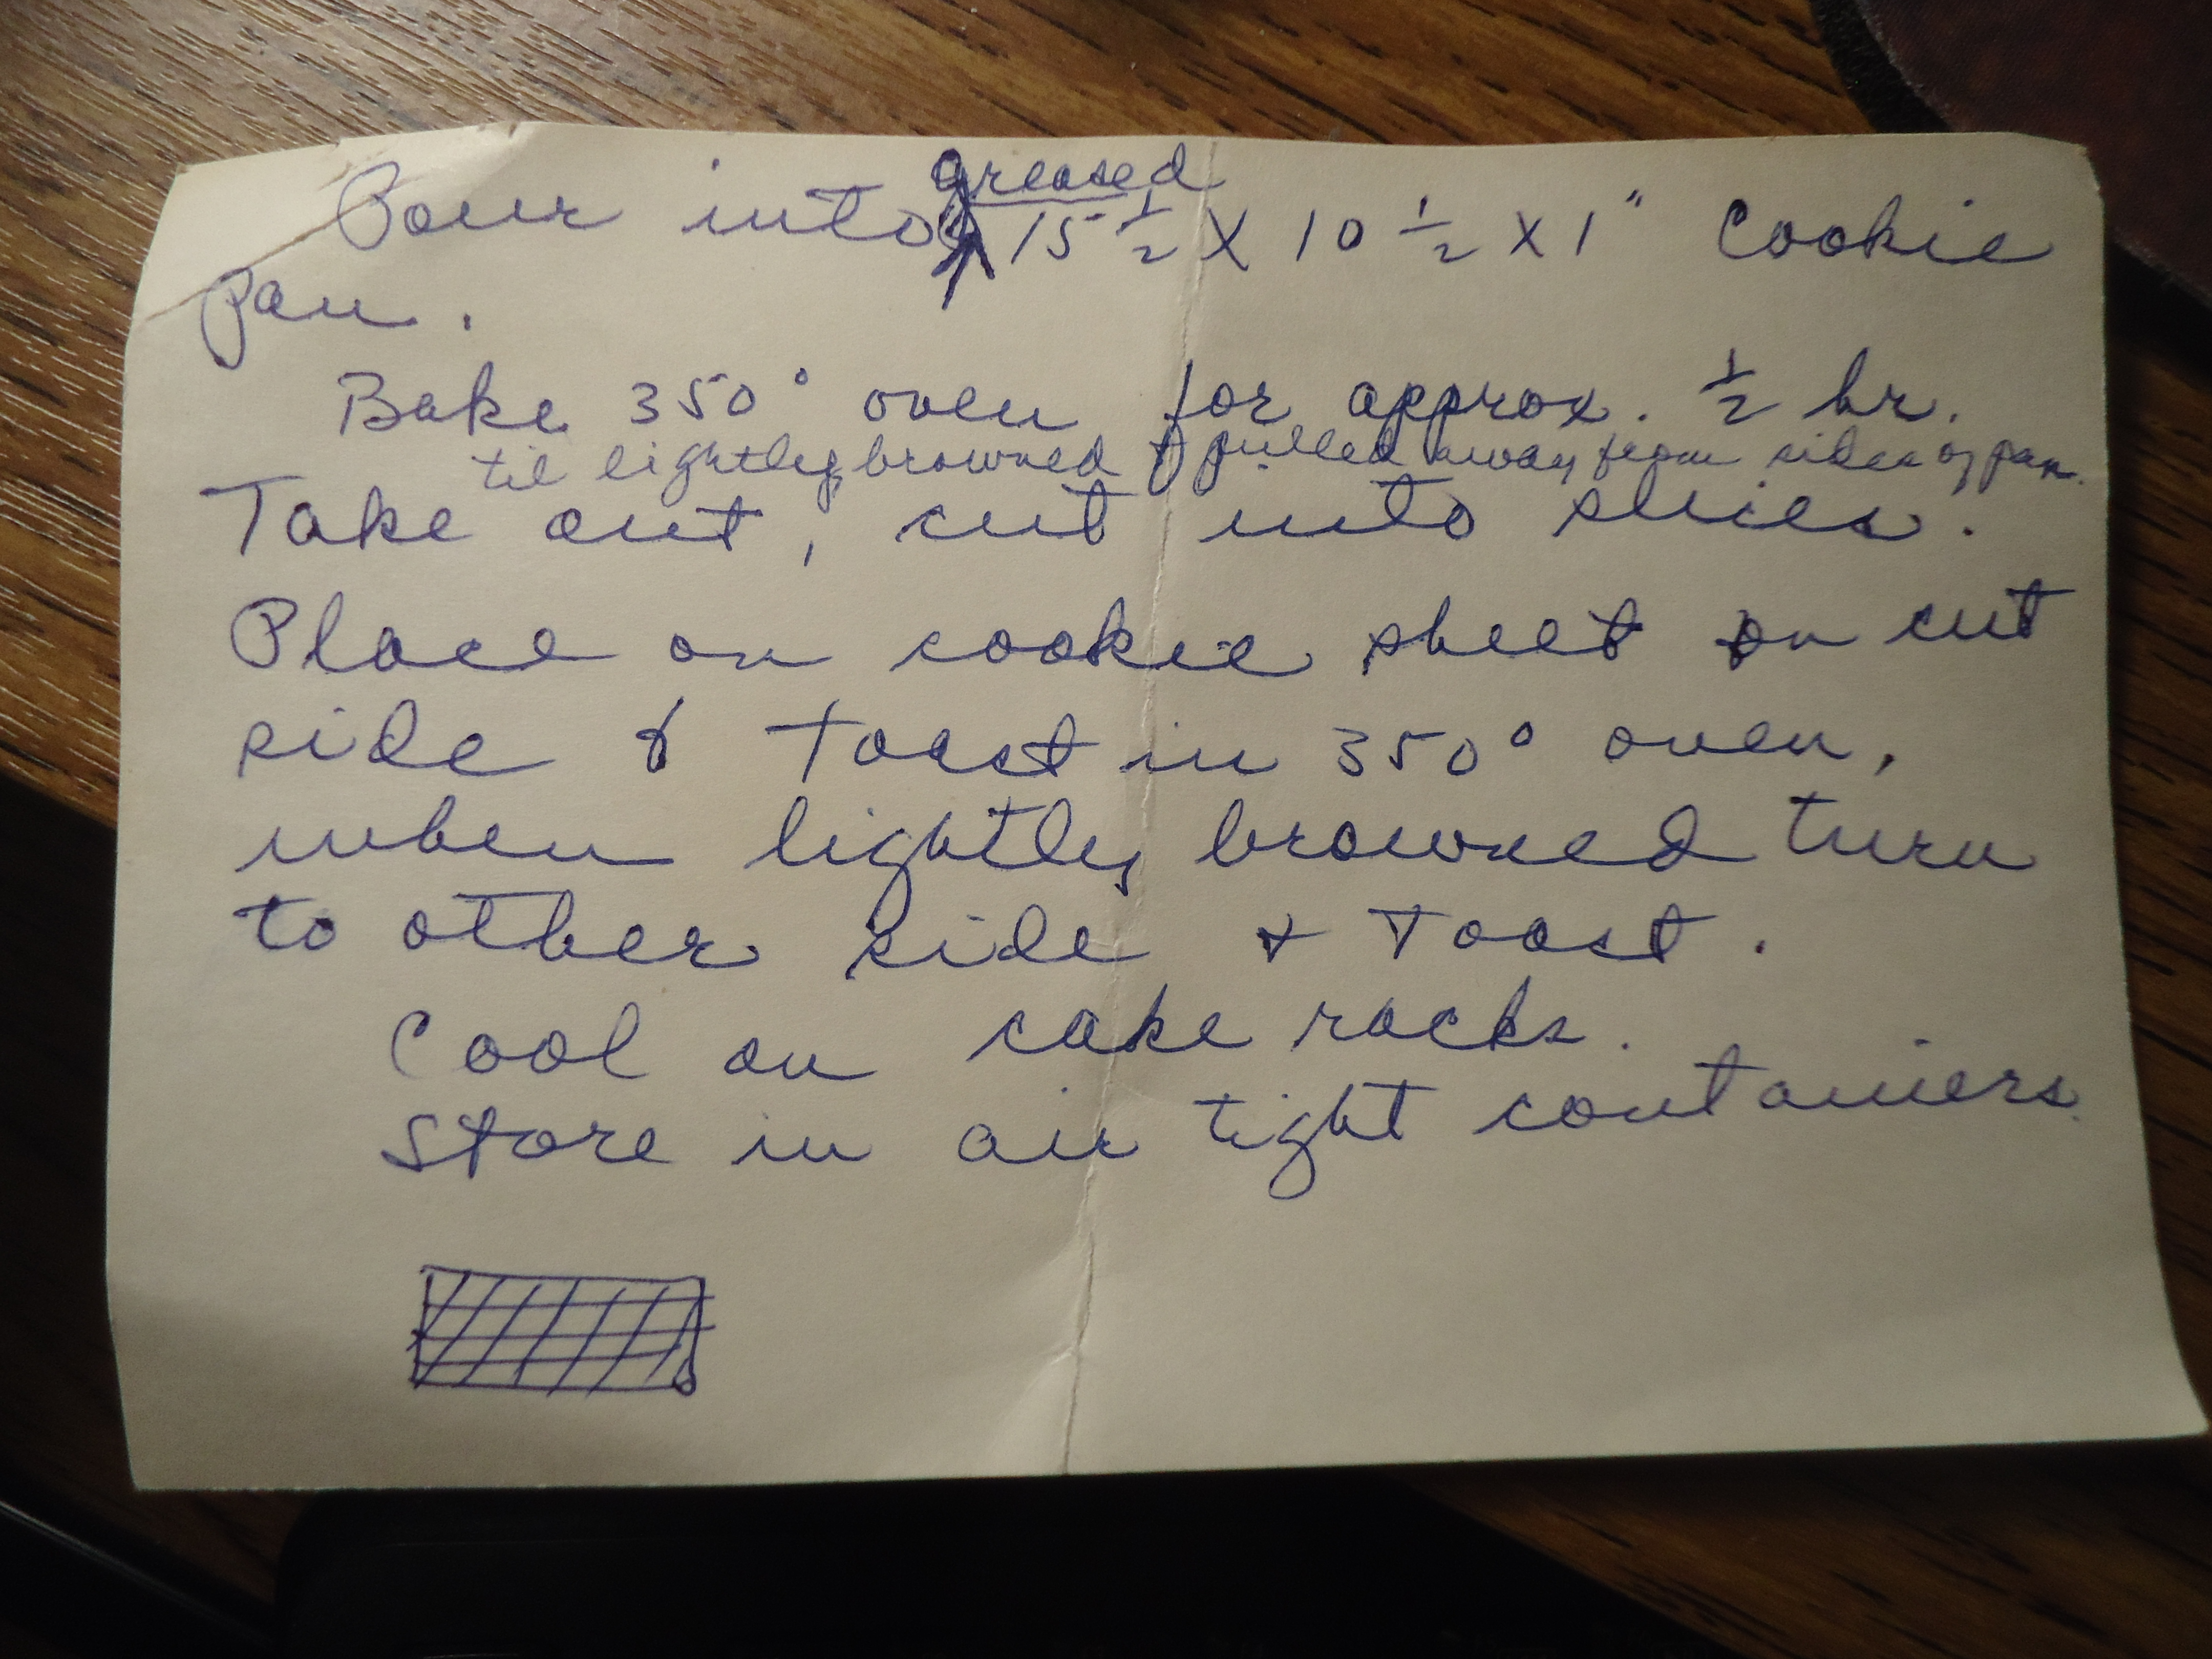 greased
Pour into 15 1/2 X 10 1/2 X 1" Cookie
pan.
Bake 350° oven for approx. 1/2 hr.
til lightly browned & pulled away from sides of pan.
Take out, cut into slices.
Place on cookie sheet on cut
side & toast in 350° oven,
when lightly browned turn
to other side & Toast.
Cool on cake racks.
Store in air tight containers.